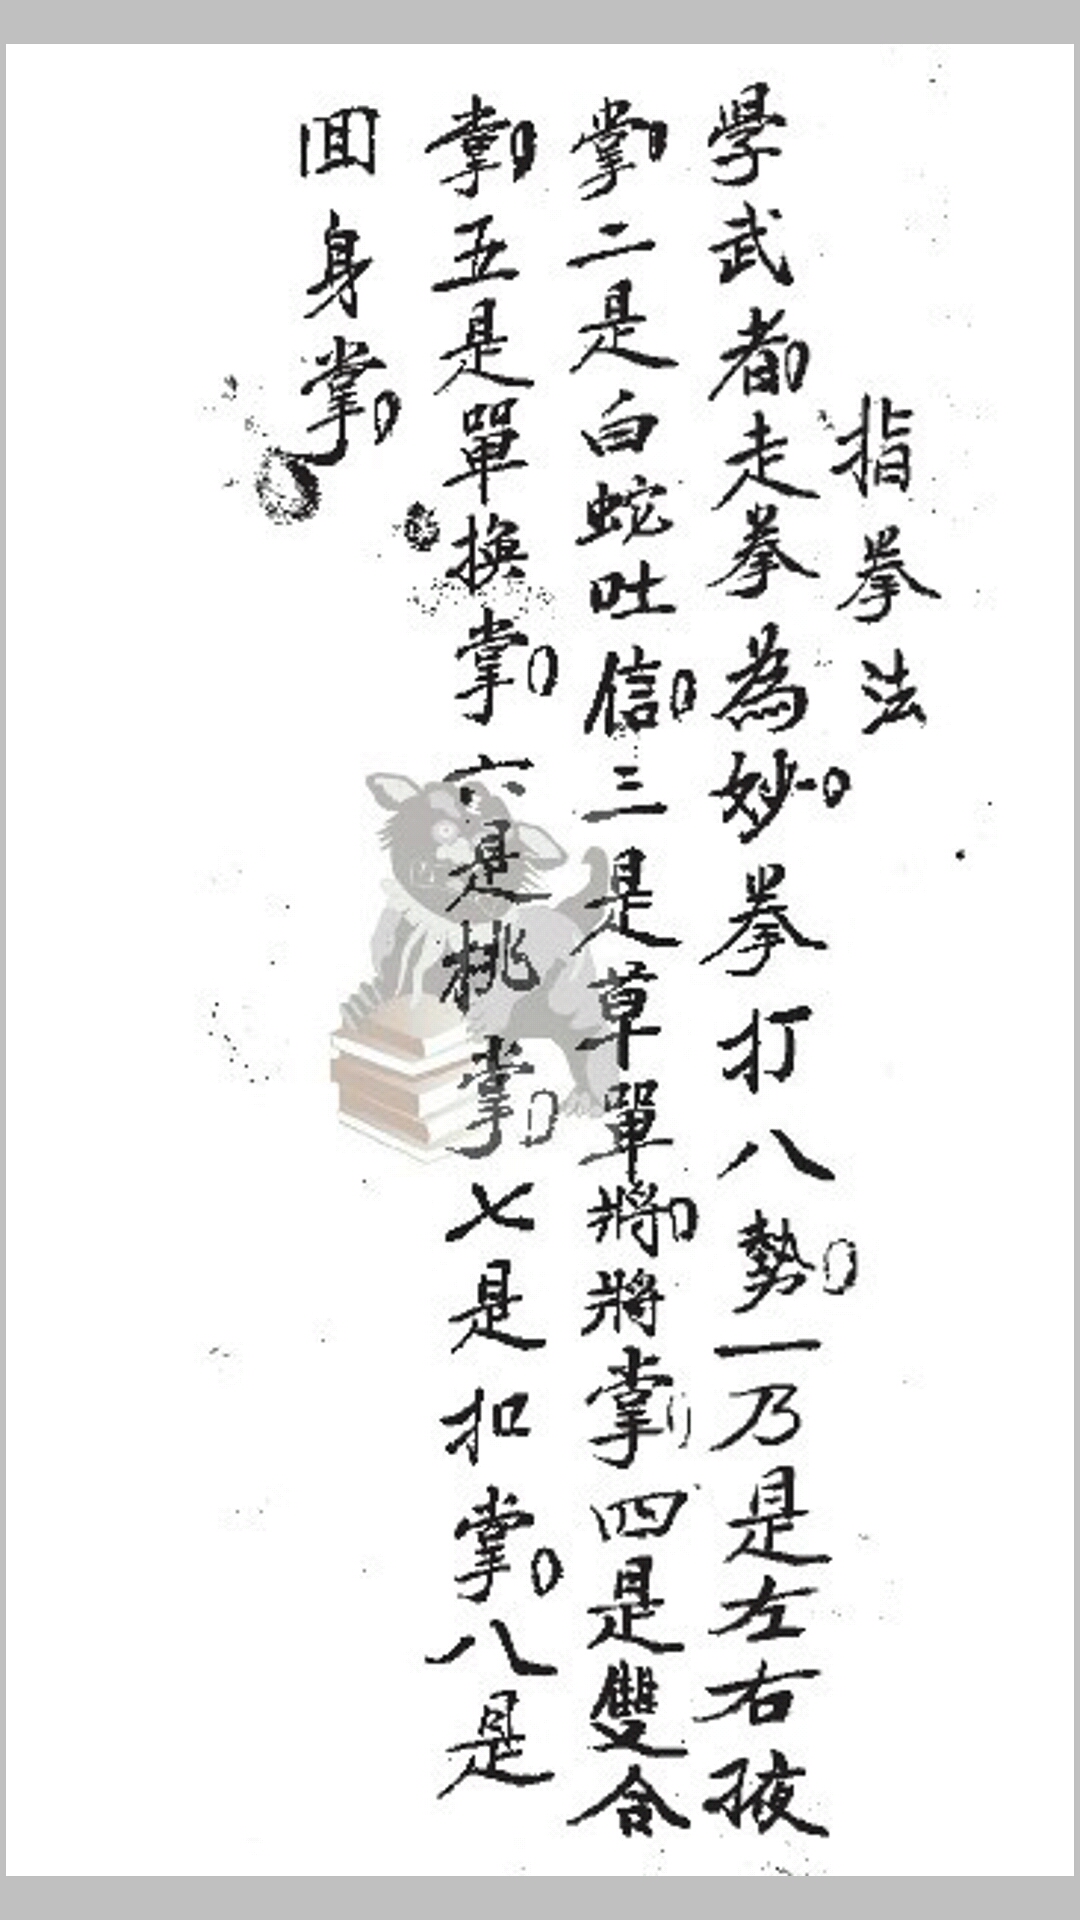 指拳法
學武者走拳為妙拳打八勢一乃是左右掖
掌二是白蛇吐信三是草單將將掌四是雙合
掌五是單換掌六是桃掌七是扣掌八是
囬身掌